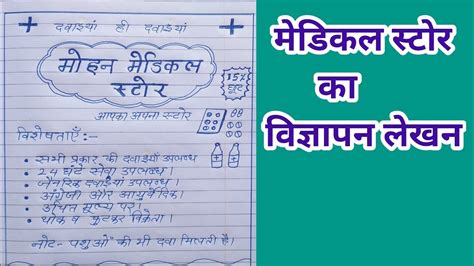 दवाइयां ही दवाइयां
मोहन मेडिकल
स्टोर
15%
छूट
आपका अपना स्टोर
विशेषताएँ :-
सभी प्रकार की दवाइयाँ उपलब्ध
24 घंटे सेवा उपलब्ध।
जैनरिक दवाईयां उपलब्ध।
अंग्रेजी और आयुर्वेदिक।
उचित मूल्य पर।
थोक व फुटकर विक्रेता।
नोट- पशुओं की भी दवा मिलती है।
मेडिकल स्टोर
का
विज्ञापन लेखन